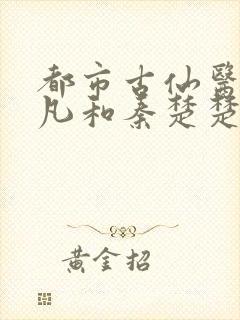 都市古仙醫
凡和秦楚楚
黃金招